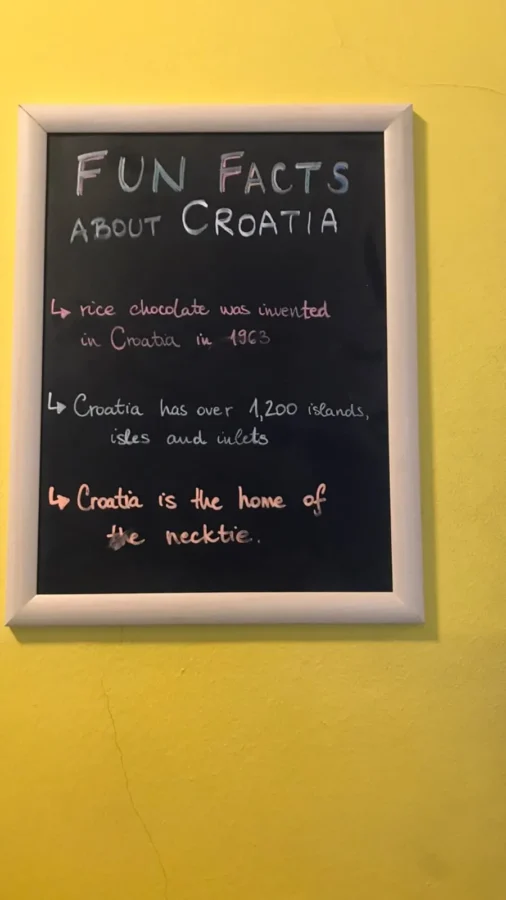 FUN FACTS
ABOUT CROATIA
↳ rice chocolate was invented
in Croatia in 1963
↳ Croatia has over 1,200 islands,
isles and inlets
↳ Croatia is the home of
the necktie.